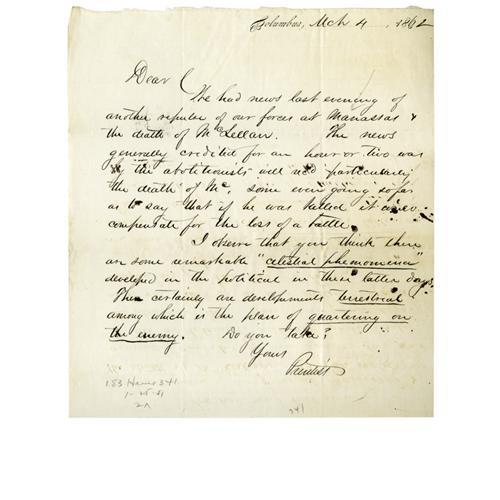 Columbus, Mch 4 1862
Dear C
We had news last evening of
another repulse of our forces at Manassas &
the death of McLellan. The news
generally credited for an hour or two was
by the abolitionists well rec'd particularly
the death of Mc, some even going so far
as to say that if he was killed it would
compensate for the loss of a battle.
I observe that you think there
are some remarkable "celestial phenomena"
developed in the political in these latter days.
There certainly are developments terrestrial
among which is the plan of quartering on
the enemy. Do you take?
Yours
Prentiss
241